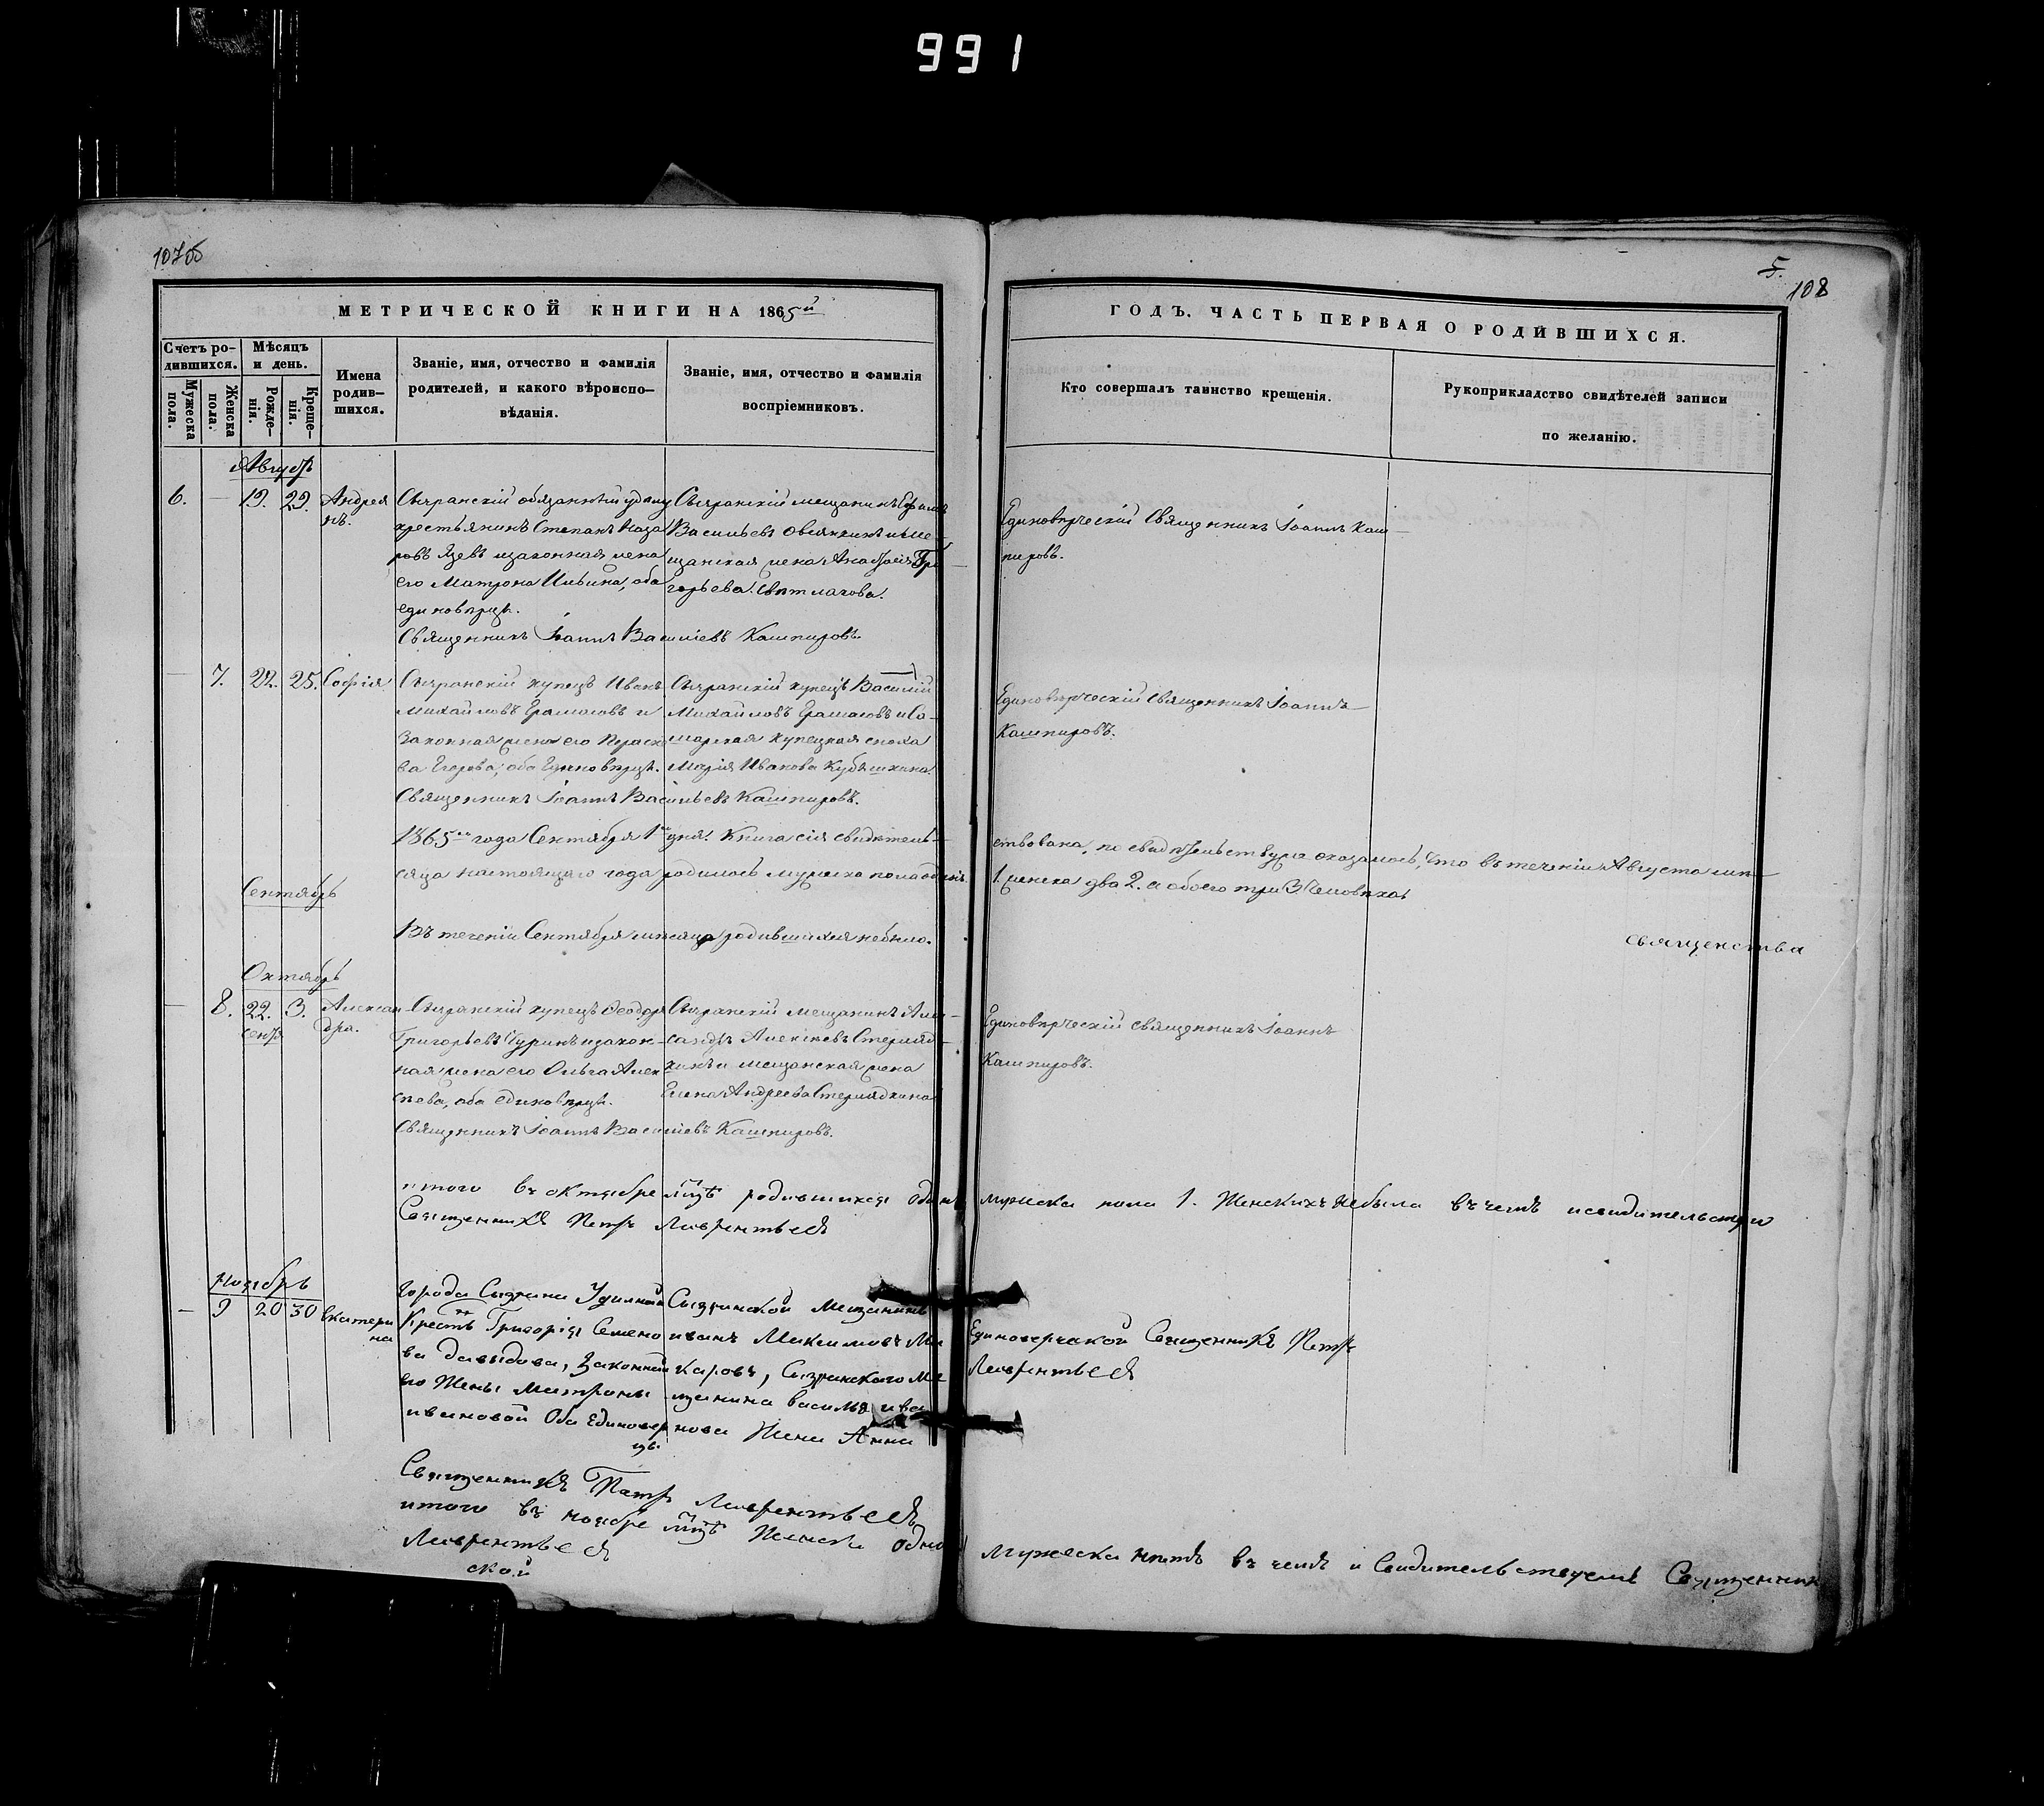 991
107об
5.
108
МЕТРИЧЕСКОЙ КНИГИ НА 1865й
ГОДЪ. ЧАСТЬ ПЕРВАЯ О РОДИВШИХСЯ.
Счетъ ро-
дившихся.
Мужеска
пола.
Женска
пола.
Мѣсяцъ
и день.
Рожде-
нія.
Креще-
нія.
Имена
родив-
шихся.
Званіе, имя, отчество и фамилія
родителей, и какого вѣроиспо-
вѣданія.
Званіе, имя, отчество и фамилія
воспріемниковъ.
Кто совершалъ таинство крещенія.
Рукоприкладство свидѣтелей записи
по желанію.
Августъ
6. — 19. 29. Андрея
нъ.
Сызранскій обязанный
крестьянинъ Степанъ Наза
ровъ изаконная жена
его Матрона Ильина, оба
единовѣрцы.
Священникъ Іоаннъ Василіевъ Кашпировъ.
Сызранскій мещанинъ Ефимъ
Васильевъ Овсянкинъ и ме-
щанская жена Анастасія Гри
горьева Светлакова.
Единовѣрческій Священникъ Іоаннъ Каш-
пировъ.
— 7. 22. 25. Софія
Сызранскій купецъ Иванъ
Михайловъ Ермолаевъ и
Законная жена его Параске
ва Егорова, оба Единовѣрцы.
Священникъ Іоаннъ Васильевъ Кашпировъ.
Сызранскій купецъ Василій
Михайловъ и Са-
марская купецкая
Марія Иванова
Единовѣрческій Священникъ Іоаннъ
Кашпировъ.
1865го года Сентября 1го дня. Книга сія свидѣтель-
ствована, по свидѣтельству оказалось, что въ теченіи Августа мѣ-
сяца настоящаго года родилось мужеска пола одинъ
1. женска два 2. а обоего три 3 Человѣка
Сентябрь
Въ теченіи Сентября мѣсяца родившихся небыло.
священства
Октябрь
— 8. 22. 3. Алексан
Сент. дра.
Сызранскій купецъ Ѳеодоръ
Григорьевъ Чуринъ изакон-
ная жена его Ольга Алек
сѣева, оба единовѣрцы.
Священникъ Іоаннъ Василіевъ Кашпировъ.
Сызранскій мещанинъ Алек-
сандръ Алексѣевъ Стерляд-
кинъ и мещанская жена
Елена Андреева Стерлядкина
Единовѣрческій священникъ Іоаннъ
Кашпировъ.
итого въ октябре мцѣ родившихся одинъ мужеска пола 1. Женскихъ небыла въ чемъ исвидительствую
Священникъ Петръ Лаврентьевъ
Ноябрь
— 9 20 30 Екатери
на
Города Сызрана Удилной
Крестъ Григорія Семено
ва Давыдова, Законной
его Жены Матроны
ивановой Оба Единовер
цы
Сызранской Мещанинъ
иванъ Максимовъ Ма
каровъ, Сызранского Ме
щанина василья ива
нова Жена Анна
Единоверческой Священникъ Петръ
Лаврентьевъ
Священникъ Петръ Лаврентьевъ
итого въ ноябре мцѣ Женска одна мужеска нѣтъ въ чемъ и Свидительствуемъ Священник
Лаврентьевъ
ской